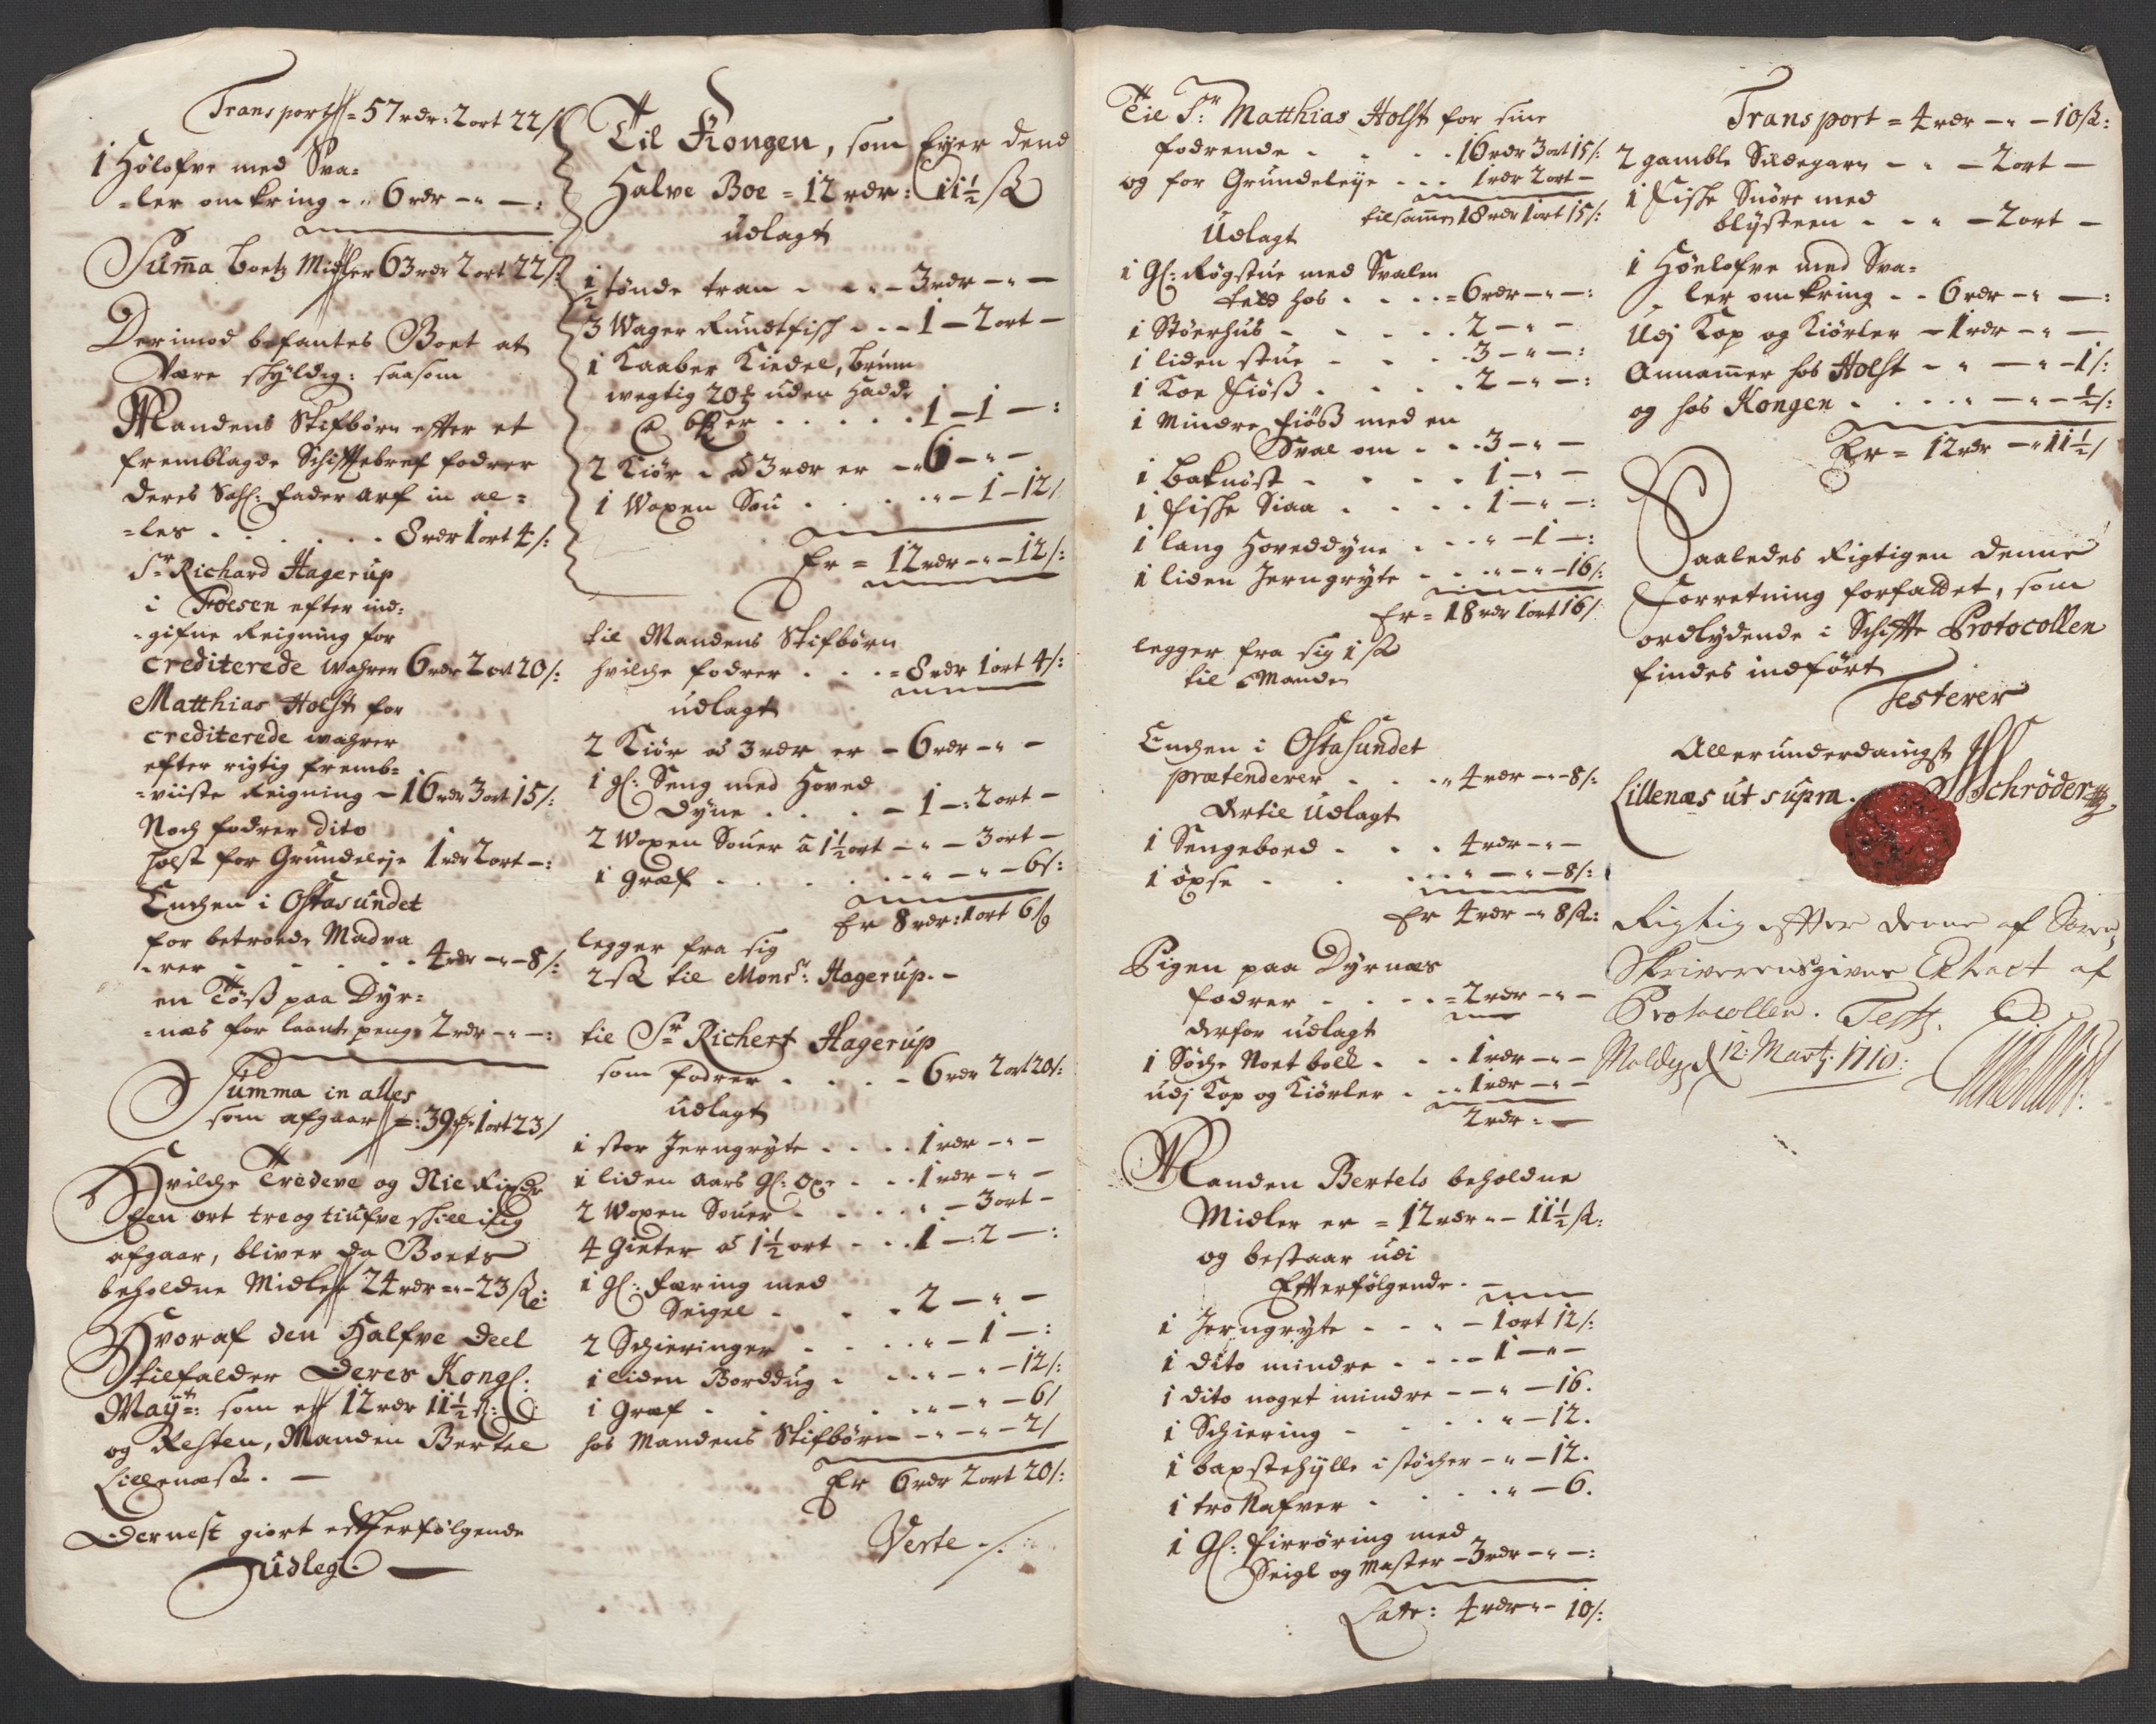 Transport = 57 rdr: 2 ort 22 s
1 Hölofve med Sva=
=ler omkring - „ 6 rdr - „ -:
Suma boetz Midler 63 rdr 2 ort 22 s
Derimod befantes Boet at
Være skyldig: saasom
Mandens Stifbørn efter et
fremblagde Schiftebref fodrer
deres Sahl: fader arf in al=
=les . . . . . 8 rdr 1 ort 4 s:
Sr Richard Hagerup
i Foesen efter ind=
=gifne Reigning for
crediterede wahrer 6 rdr 2 ort 20 s:
Matthias Holst for
crediterede wahrer
efter rigtig fremb=
=viiste Reigning - 16 rdr 3 ort 15 s:
Noch fodrer dito
Holst for Grundeleje 1 rdr 2 ort -:
Enchen i Ostasundet
for betroede Madva
=rer - - - - 4 rdr - „ - 8 s:
en Töss paa Dyr=
=nas for laante penge 2 rdr - „ -:
Summa in alles
som afgaar =: 39 rdr 1 ort 23 s
Hvilche Tredeve og Nie Rixdr
Een ort tre og tiufve skilling
afgaar, bliver da Boets
beholdne Midler 24 rdr = „ - 23 s:
Hvoraf den Halfve Deel
tilfalder Deres Kongl:
Mayt: som er 12 rdr 11½ s:
og Resten, Manden Bertel
Lillenæss. -
Dernest giort efterfølgende
Udleg. -
Til Kongen, som Eyer dend
Halve Boe = 12 rdr: 11½ s
udlagt
½ tönde tran - - „ - 3 rdr - „ -
3 Wager Rundtfisch - - 1 - 2 ort -
1 Kaaber Kiedel, brun
wegtig 20 uden Hadde
er . . . . . 1 - 1 -:
2 Kiör - à 3 rdr er - „ 6 - „ -
1 Woxen Sou . . . „ - 1 - 12 s
Er = 12 rdr - „ - 12 s:
til Mandens Stifbørn
hvilche fodrer . . . = 8 rdr 1 ort 4 s:
udlagt
2 Kiör à 3 rdr er - 6 rdr - „ -
1 gl: Seng med Hoved
Dyne . . . - 1 -: 2 ort -
2 Woxen Souer à 1½ ort - „ - 3 ort -
1 Graf . . . . . „ - „ - 6 s:
Er 8 rdr: 1 ort 6 s
legger fra sig
2 s til Monsr: Hagerup. -
til Sr Richert Hagerup
som fodrer . . . - 6 rdr 2 ort 20 s:
udlagt
1 stor Jerngryte . . . . 1 rdr - „ -
1 liden Aars gl: Oxe . . 1 rdr - „ -
2 Woxen Souer - . . . „ - 3 ort -
4 Gieter à 1½ ort - . . 1 -: 2 -:
1 gl: færing med
Seigel . . . . 2 - „ -
2 Schieringer . . . . „ - 1 -:
1 liden Borddug . . . . „ - „ - 12 s:
1 Graf . . . . . . „ - „ - 6 s
hos Mandens Stifbørn - „ - „ - 2 s
Er 6 rdr 2 ort 20 s:
Verte ./.
Til Sr: Matthias Holst for sine
fodrende . . . . 16 rdr 3 ort 15 s:
og for Grundeleije . . . 1 rdr 2 ort -
tilsamen 18 rdr 1 ort 15 s:
Udlagt
1 gl: Røgstue med Svalen
hos . . . . = 6 rdr - „ -:
1 Störhus - . . . . 2 - „ -
1 liden stue - . . . 3 - „ -:
1 Koe Fiöss . . . . . 2 - „ -:
1 Mindre fiöss med en
Sval om . . . 3 - „ -
1 Batnöst - . . . . 1 - „ -
1 fiske Siaa . . . . . 1 - „ -:
1 lang Hoveddyne . . . „ - 1 -:
1 liden Jerngryte . . . „ - „ - 16 s:
Er = 18 rdr 1 ort 16 s:
legger fra sig 1 s
til Manden
Enchen i Ostasundet
prætenderer . . . „ 4 rdr - „ - 8 s:
dertil Udlagt
1 Sengeboed . . . 4 rdr - „ -
1 öxse . . . . „ - „ - 8 s:
Er 4 rdr - „ 8 s:
Pigen paa Dyrnæs
fodrer . . . . = 2 rdr - „ -
derfor udlagt
1 Söche Noet boell . . . 1 rdr - „ -
udj Kop og Kiörler . . „ 1 rdr - „ -
2 rdr = -
Manden Bertels beholdne
Midler er = 12 rdr „ - 11½ s:
og bestaar udi
Efterfølgende. -
1 Jerngryte - - „ - 1 ort 12 s:
1 dito mindre . . . - 1 - „ -
1 dito noget mindre - - „ - 16.
1 Schiering - . . . . „ - 12.
1 baxstehylle i stöcher - „ - 12.
1 tro Nafver . . . . . „ - 6.
1 gl: firröring med
Seigl og Master - 3 rdr - „ -:
Latr: 4 rdr „ - 10 s:
Transport = 4 rdr - „ - 10 s:
2 gamble Sildegarn - „ - 2 ort -
1 Fiske Snöre med
blysteen . . „ - 2 ort -
1 Höelofve med Sva=
=ler omkring - - 6 rdr - „ -:
Udj Kop og Kiörler - 1 rdr - „ -
Annamer hos Holst - „ - „ - 1 s:
og hos Kongen . . . . „ - „ - ½ s:
Er = 12 rdr - „ 11½ s
Saaledes Rigtigen denne
Forretning forfaldet, som
ordlydende i Schifte Protocollen
findes indfört
Testerer
Allerunderdanigst
Lillenæs ut supra. Schröder
Rigtig efter denne af Soren-
Skriverens givne Extract af
Protocollen. Test.
Molde d 12: Marty: 1710: